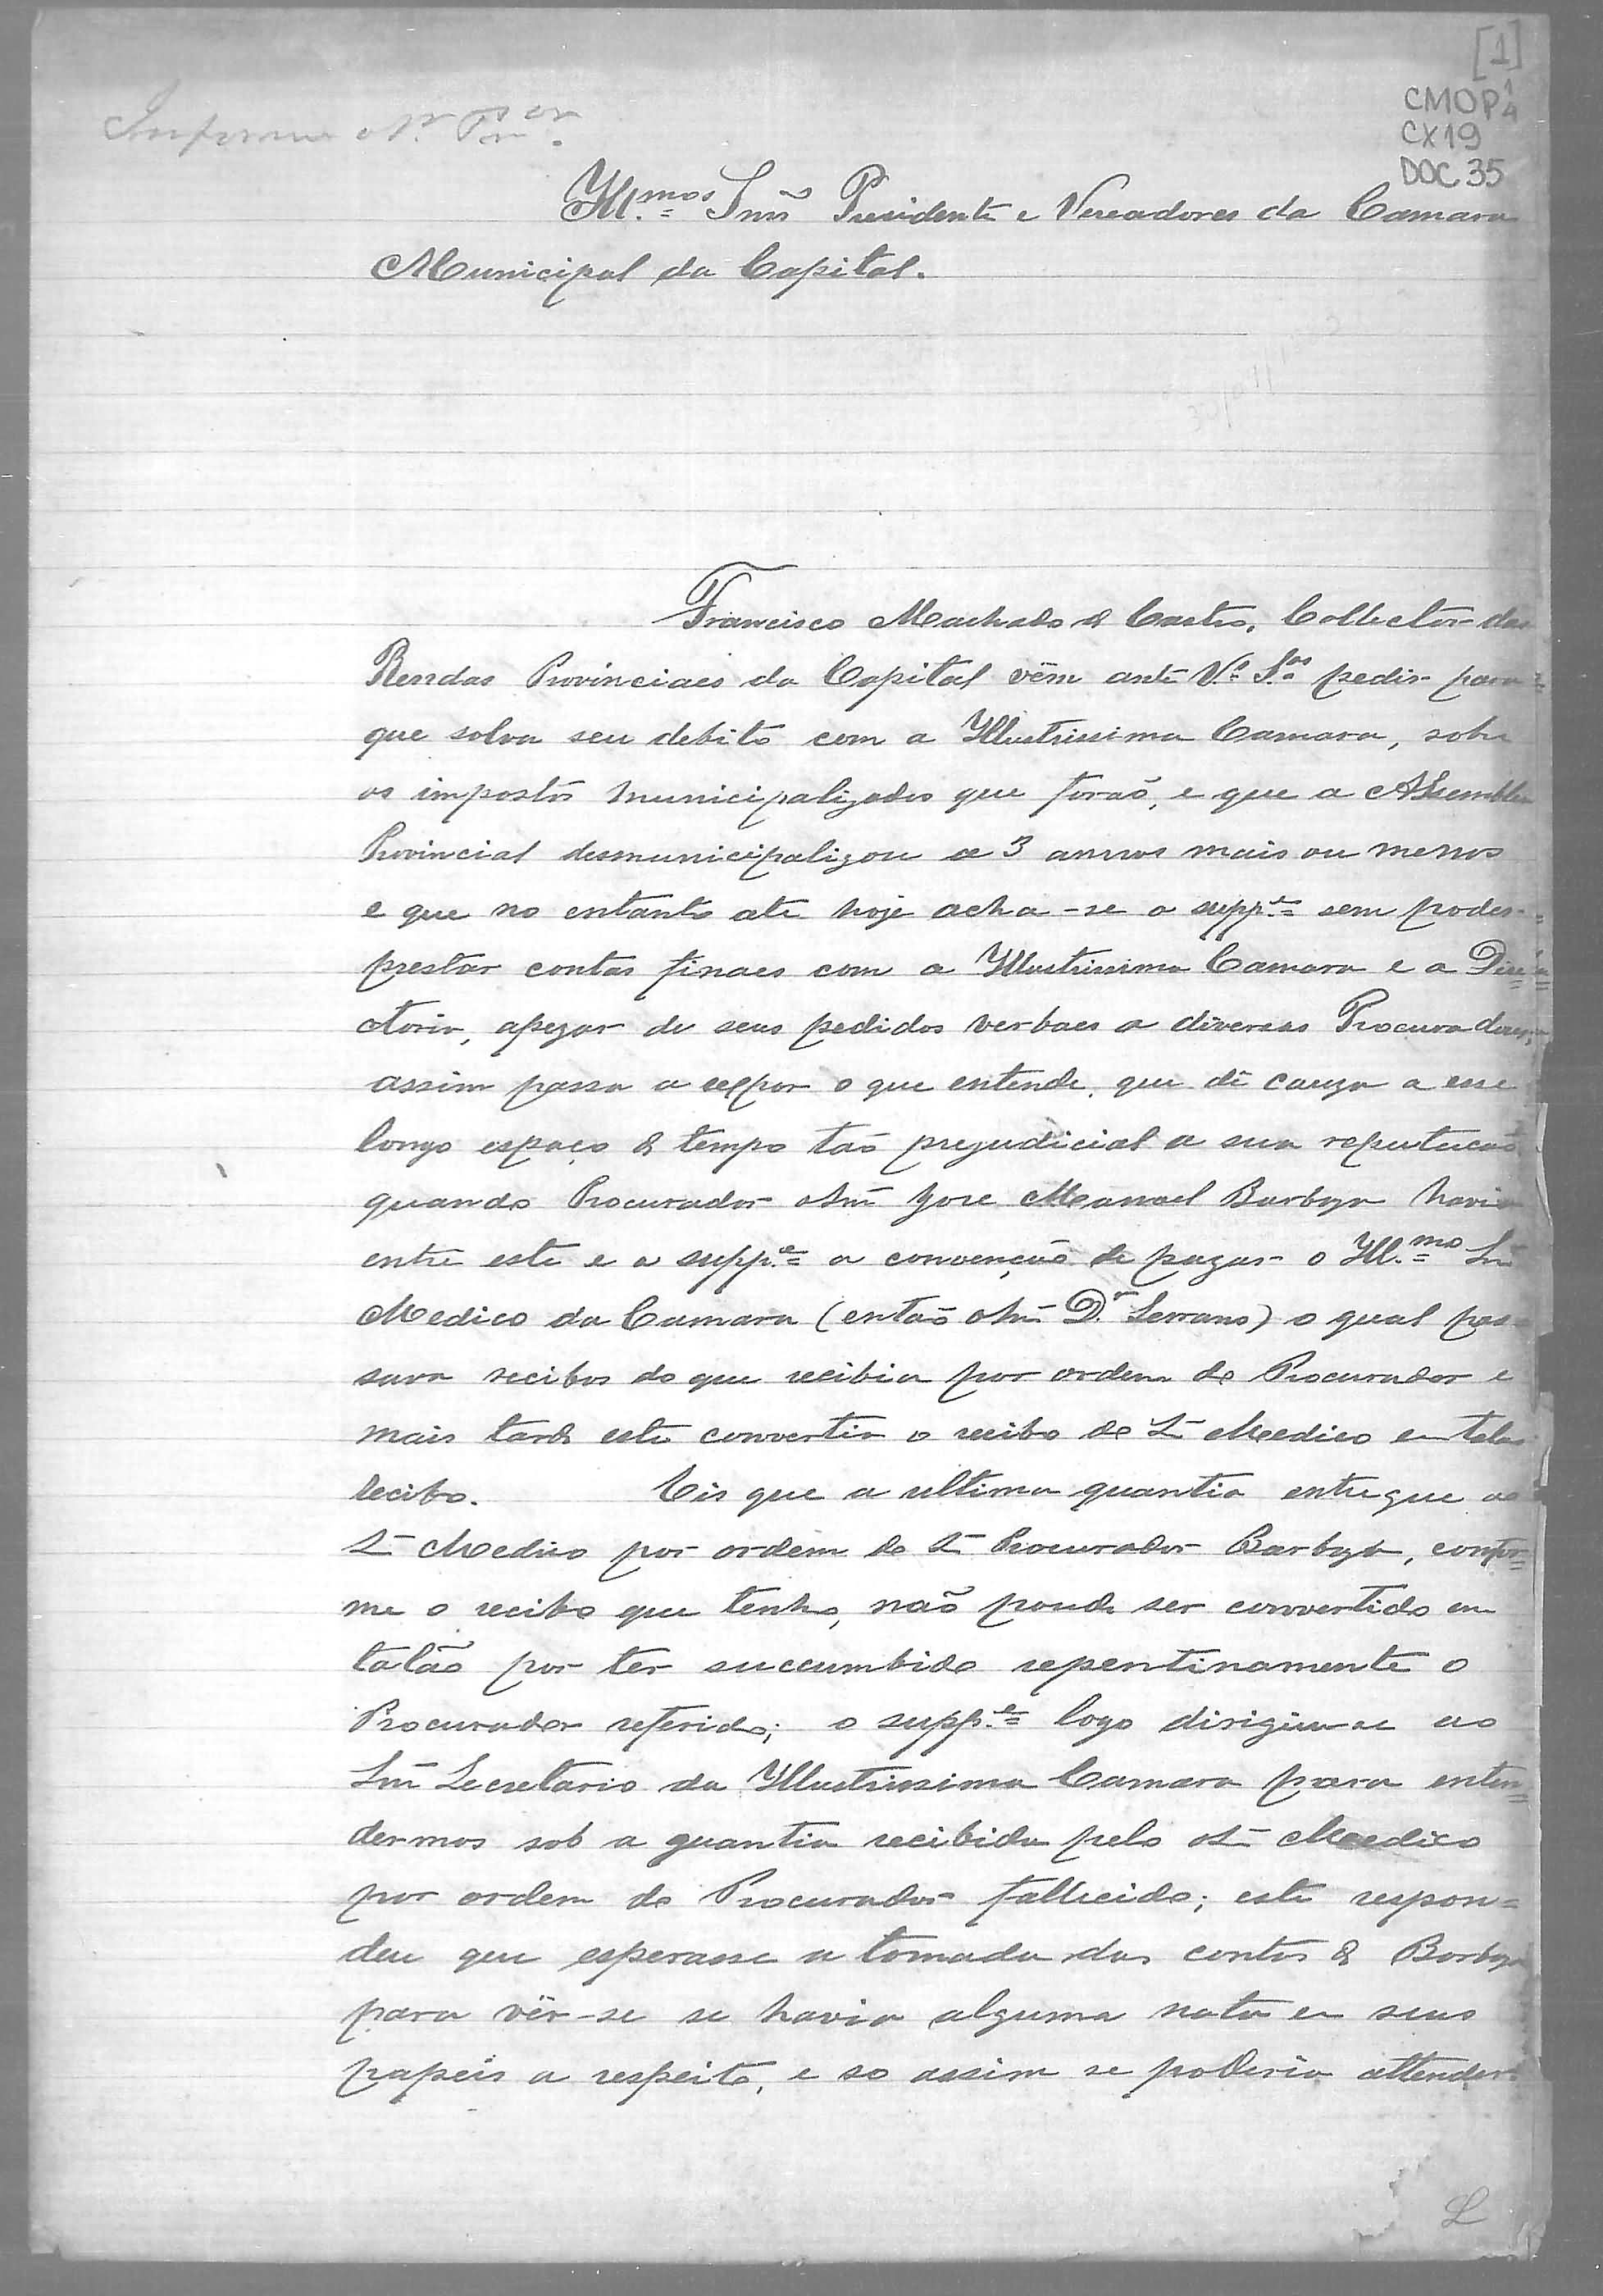 [1]
CMOP 1/4
CX19
DOC 35
Informe o Sr.
Ill.mos Snrs Presidente e Vereadores da Camara
Municipal da Capital.
Francisco Machado de Castro, Collector das
Rendas Provinciaes da Capital vêm ante V.s S.as pedir para
que solva seu debito com a Illustrissima Camara, sobre
os impostos municipalizados que forão, e que a Assemblea
Provincial desmunicipalizou a 3 annos mais ou menos
e que no entanto ate hoje acha-se o supp.e sem poder
prestar contas finaes com a Illustrissima Camara e a Dire=
ctoria, apezar de seus pedidos verbaes a diversos Procuradores,
assim passa a expor o que entende, que dê cauza a esse
longo espaço de tempo tão prejudicial a sua reputacão
quando Procurador o Snr Joze Manoel Barboza havia
entre este e o supp.e a convenção de pagar o Ill.mo Snr
Medico da Camara (então o Snr D.or Serrano) o qual pas=
sava recibos do que recibia por ordem do Procurador e
mais tarde este convertia o recibo do Sr Medico em talão
recibo. Eis que a ultima quantia entregue ao
Sr Medico por ordem do Sr Procurador Barboza, confor=
me o recibo que tenho, não poude ser convertido em
talão por ter succumbido repentinamente o
Procurador referido; o supp.e logo dirigiu-se ao
Snr Secretario da Illustrissima Camara para enten=
dermos sob a quantia recibida pelo Sr Medico
por ordem do Procurador fallicido; este respon=
deu que esperasse a tomada das contas de Barboza
para vêr-se se havia alguma nota em seus
papeis a respeito, e so assim se poderia attender